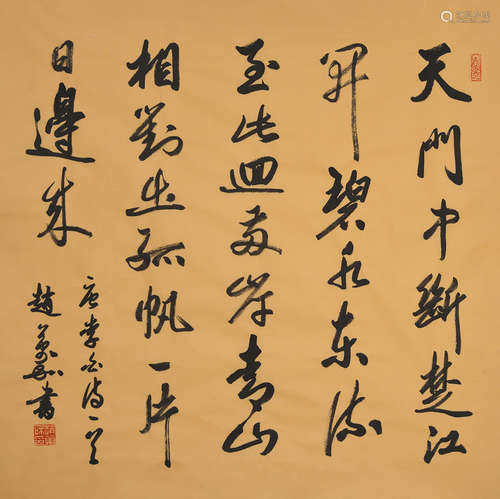 天門中斷楚江
開碧水東流
至此迴兩岸青山
相對出孤帆一片
日邊來
唐李白詩一首
趙 書